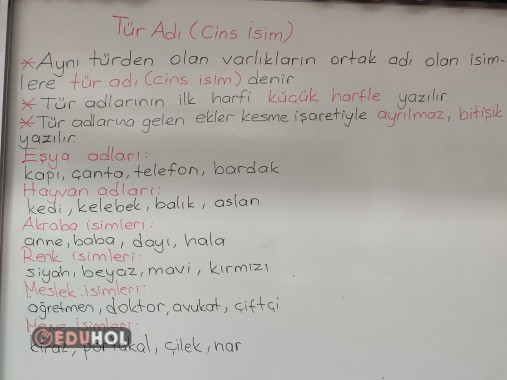 Tür Adı (Cins isim)
*Aynı türden olan varlıkların ortak adı olan isim-
lere tür adı (cins isim) denir.
*Tür adlarının ilk harfi küçük harfle yazılır.
*Tür adlarına gelen ekler kesme işaretiyle ayrılmaz, bitişik
yazılır.
Eşya adları:
kapı, çanta, telefon, bardak
Hayvan adları:
kedi, kelebek, balık, aslan
Akraba isimleri:
anne, baba, dayı, hala
Renk isimleri:
siyah, beyaz, mavi, kırmızı
Meslek isimleri:
öğretmen, doktor, avukat, çiftçi
isimleri:
EDUHOL
kiraz, portakal, çilek, nar